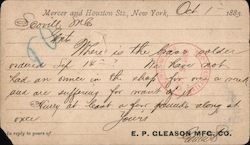 Mercer and Houston Sts., New York, Oct 1 188
Scovill Mfg Co
Gent
Where is the brass solder
ordered Sep 14 ? We have not
had an ounce in the shop for
and are suffering for want of it
Hurry at least a few pounds along at
once. Yours
In reply to yours of
E. P. GLEASON MFG. CO.